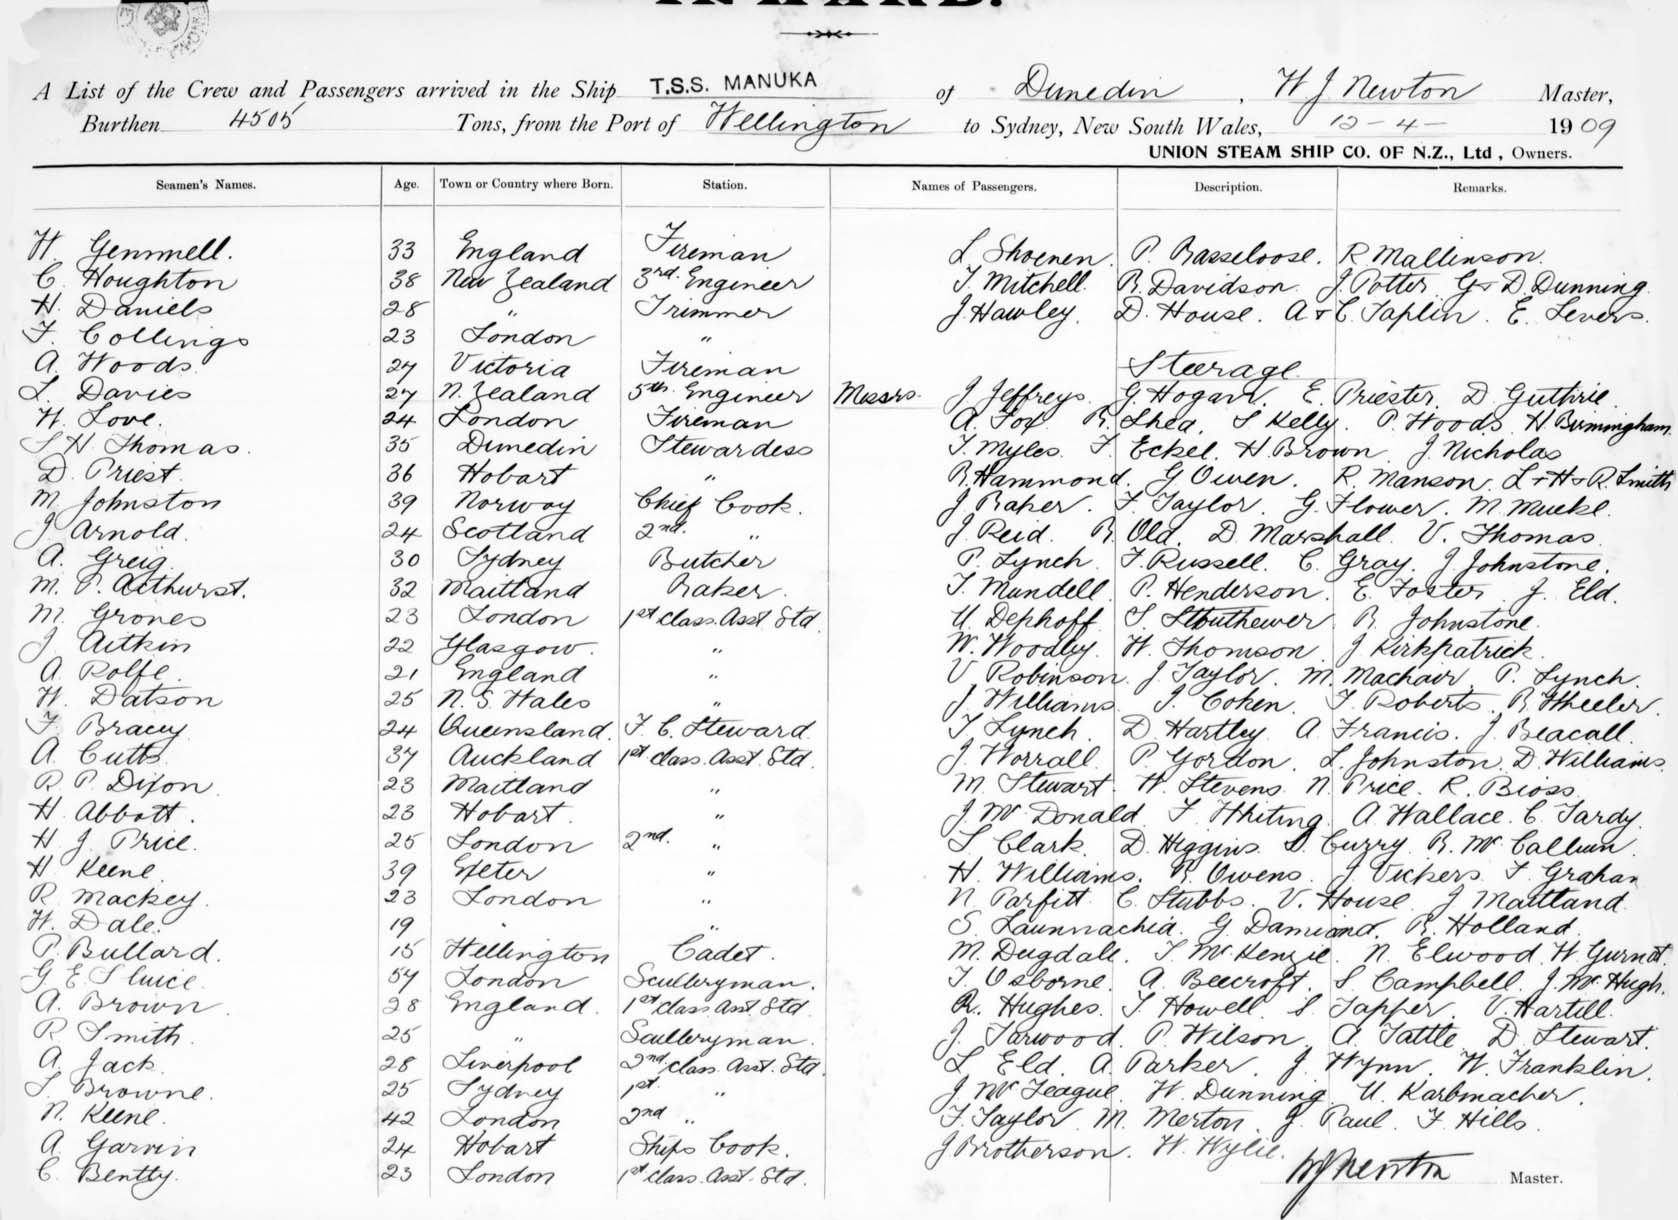 A List of the Crew and Passengers arrived in the Ship T.S.S. MANUKA of Dunedin, W J Newton Master,
Burthen 4505 Tons, from the Port of Wellington to Sydney, New South Wales, 12-4- 1909
UNION STEAM SHIP CO. OF N.Z., Ltd, Owners.
Seamen's Names. Age. Town or Country where Born. Station. Names of Passengers. Description. Remarks.
H. Gemmell. 33 England Fireman L Shoenen. P. Rasseloose. R Mallinson.
C. Houghton 38 New Zealand 3rd Engineer T. Mitchell R. Davidson. J. Potter G & D. Dunning.
H. Daniels 28 " Trimmer J. Hawley. D. House. A & C. Taplin. E. Levers.
F. Collings 23 London "
A. Woods. 27 Victoria Fireman Steerage
L. Davies 27 N. Zealand 5th Engineer Messrs. J Jeffreys. G. Hogan. E. Priester D. Guthrie.
W. Love. 24 London Fireman A. Fox R. Shea. S Kelly. P. Woods. H Birmingham
S H Thomas. 35 Dunedin Stewardess T. Myles F. Eckel. H. Brown J. Nicholas
D. Priest. 36 Hobart " R. Hammond. G Owen. R. Manson. L & H & R. Smith
M Johnston 39 Norway Chief Cook. J Baker. F. Taylor. G. Flower. M.
J. Arnold. 24 Scotland 2nd " J. Reid. R. Old. D. Marshall. V. Thomas.
A. Greig. 30 Sydney Butcher P. Lynch. F. Russell. C. Gray. J Johnstone.
M. P. 32 Maitland Baker. T. Mundell. P. Henderson. E Foster. J. Eld.
M. Groves 23 London 1st class. Asst. Std. U. Dephoff. S. R. Johnstone.
J Aitkin 22 Glasgow. " W. Woodley. W. Thomson. J Kirkpatrick.
A. Rolfe. 21 England " V Robinson. J Taylor. M. Machair. P. Lynch.
W. Datson 25 N. S. Wales " J. Williams J. Cohen. F. Roberts. R. Wheeler.
F. Bracey 24 Queensland. F. C. Steward. T. Lynch. D. Hartley. A Francis. J. Beacall.
A. Cutts. 37 Auckland 1st class. Asst. Std. J. Worrall. P. Gordon. L. Johnston. D. Williams.
R. P. Dixon 23 Maitland " M. Stewart. W. Stevens. N Price. R.
H. Abbott. 23 Hobart. " J. McDonald F. Whiting. A Wallace. C. Tardy.
H. J. Price. 25 London 2nd. " S Clark. D. Higgins. Curry. R. McCallum.
H Keene. 39 Exeter " H. Williams. R. Owens. J. Vickers. F. Graham
R. Mackey. 23 London " N Parfitt C. Stubbs. V. House. J Maitland.
W. Dale. 19 " " S. G. R. Holland.
P. Bullard. 15 Wellington Cadet. M. Dugdale. T. McKenzie. N. Elwood. W
G E Sluice. 57 London Sculleryman. T. Osborne. A. Beecroft. S. Campbell. J. McHugh.
A. Brown 28 England. 1st class Asst Std R. Hughes. T. Howell. S. Tapper. V. Hartill.
R Smith. 25 " Sculleryman. J. Tarwood. P. Wilson A. Tattle. D. Stewart.
A. Jack. 28 Liverpool 2nd class. Asst. Std. L. Eld. A. Parker. J. Wynn. W. Franklin.
S. Browne. 25 Sydney 1st. " J. McTeague. W. Dunning. U. Karbmacher.
N. Keene. 42 London 2nd " F. Taylor M. Merton. J. Paul. F. Hills.
A. Garvin 24 Hobart Ships Cook. J Brotherson. W. Wylie.
C. Bentty. 23 London 1st Class. Asst. Std. WJNewton Master.